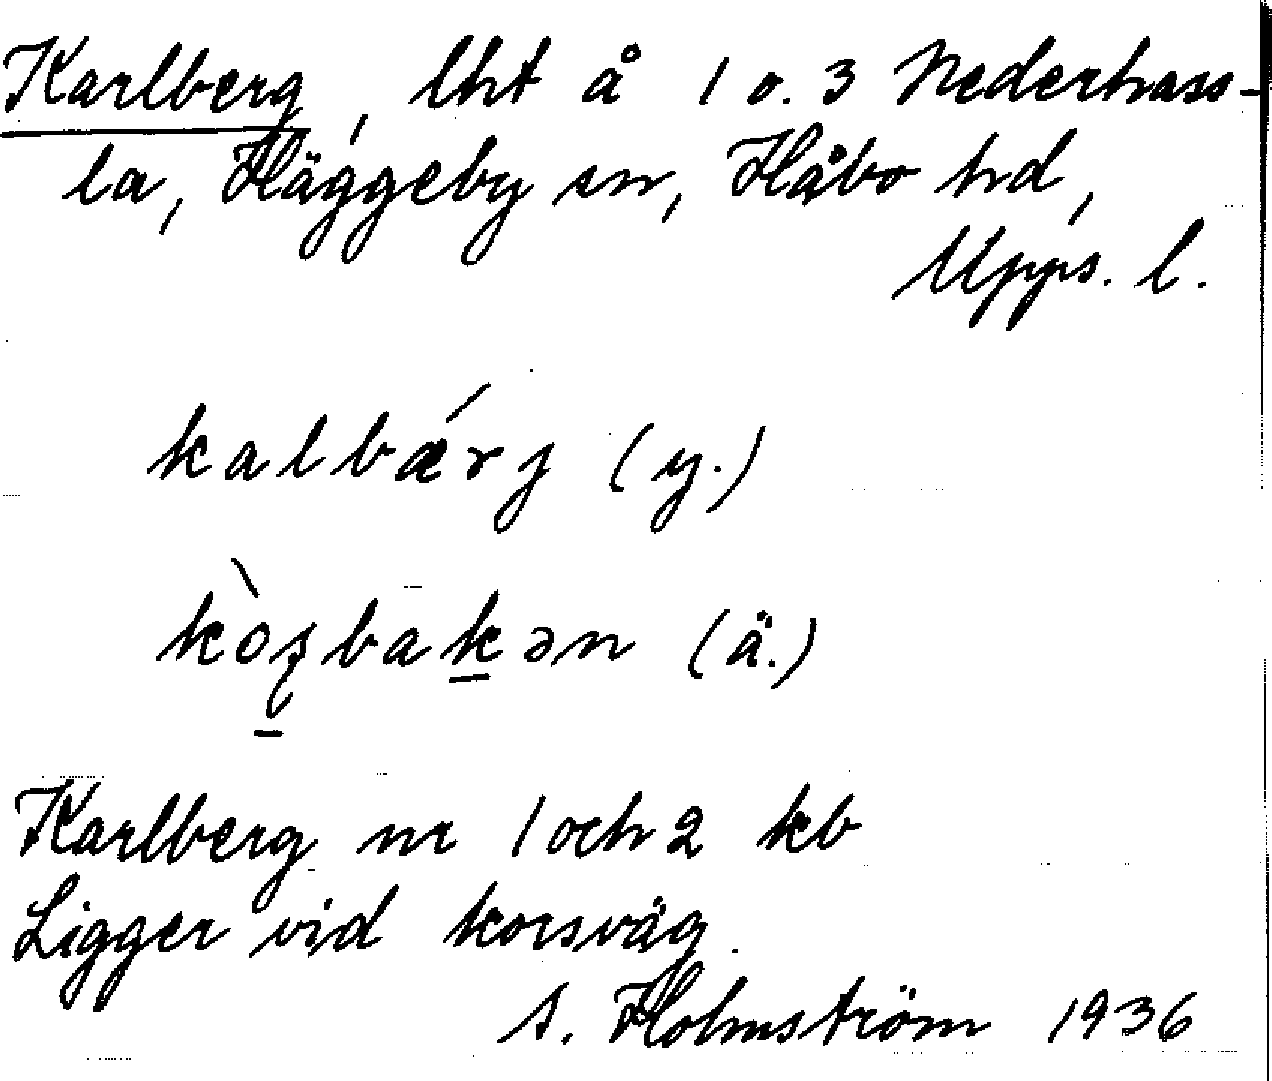 Karlberg, lht å 1 o. 3 Nederhass-
la, Häggeby sn, Håbo hd,
Upps. l.
kalbǽrj (y.)
kòʂbakən (ä.)
Karlberg nr 1 och 2 kb
Ligger vid korsväg.
A. Holmström 1936